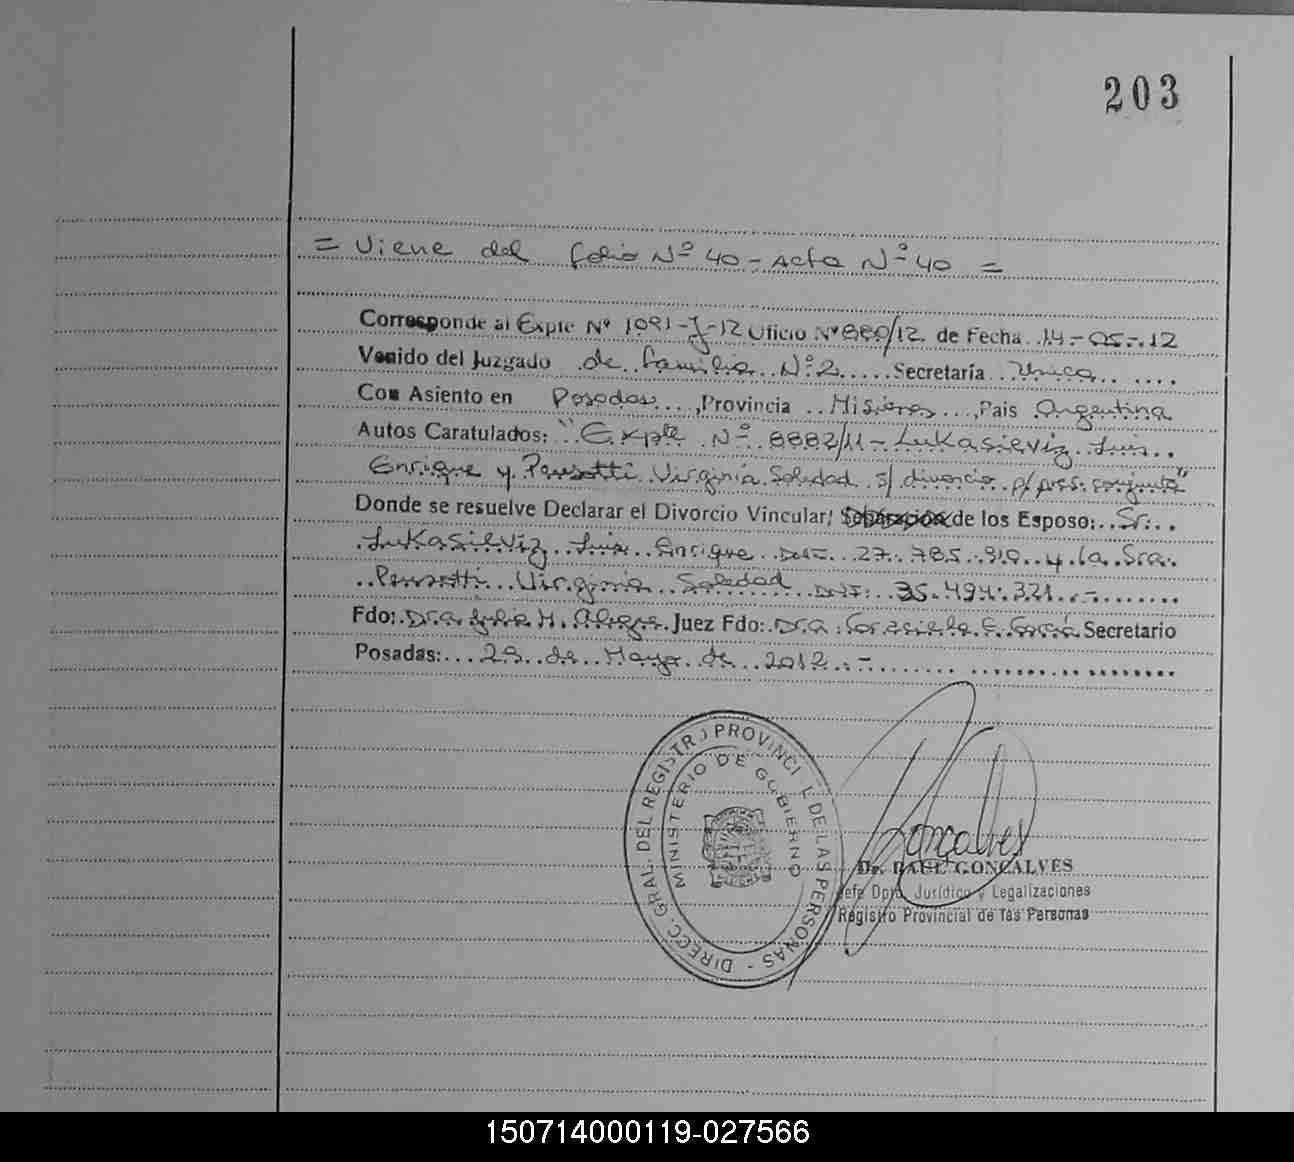 203
= Viene del folio Nº 40 - Acta Nº 40 =
Corresponde al Expte Nº 1091-J-12 Oficio Nº 880/12. de Fecha 14.-05.-.12
Venido del Juzgado de familia Nº 2 ..... Secretaría Unica ....
Con Asiento en Posadas ..., Provincia .. Misiones ..., Pais Argentina
Autos Caratulados: "Expte Nº 8882/11 - Lukasieviz Luis
Enrique y Virginia Soledad s/ divorcio p/ pres. conjunta"
Donde se resuelve Declarar el Divorcio Vincular/ Separación de los Esposo: .. Sr. ..
Lukasieviz Luis Enrique DNI 27.785.919 y la Sra.
Virginia Soledad DNI: 35.494.321 .-
Fdo: Dra. Julia M. Juez Fdo: Dra. Graciela E. García Secretario
Posadas: ... 29 de Mayo de 2012 .-
DIRECC. GRAL. DEL REGISTRO PROVINCI L DE LAS PERSONAS -
MINISTERIO DE GOBIERNO
Goncalves
Dr. RAUL GONCALVES
Jefe Dpto. Jurídico y Legalizaciones
Registro Provincial de las Personas
150714000119-027566